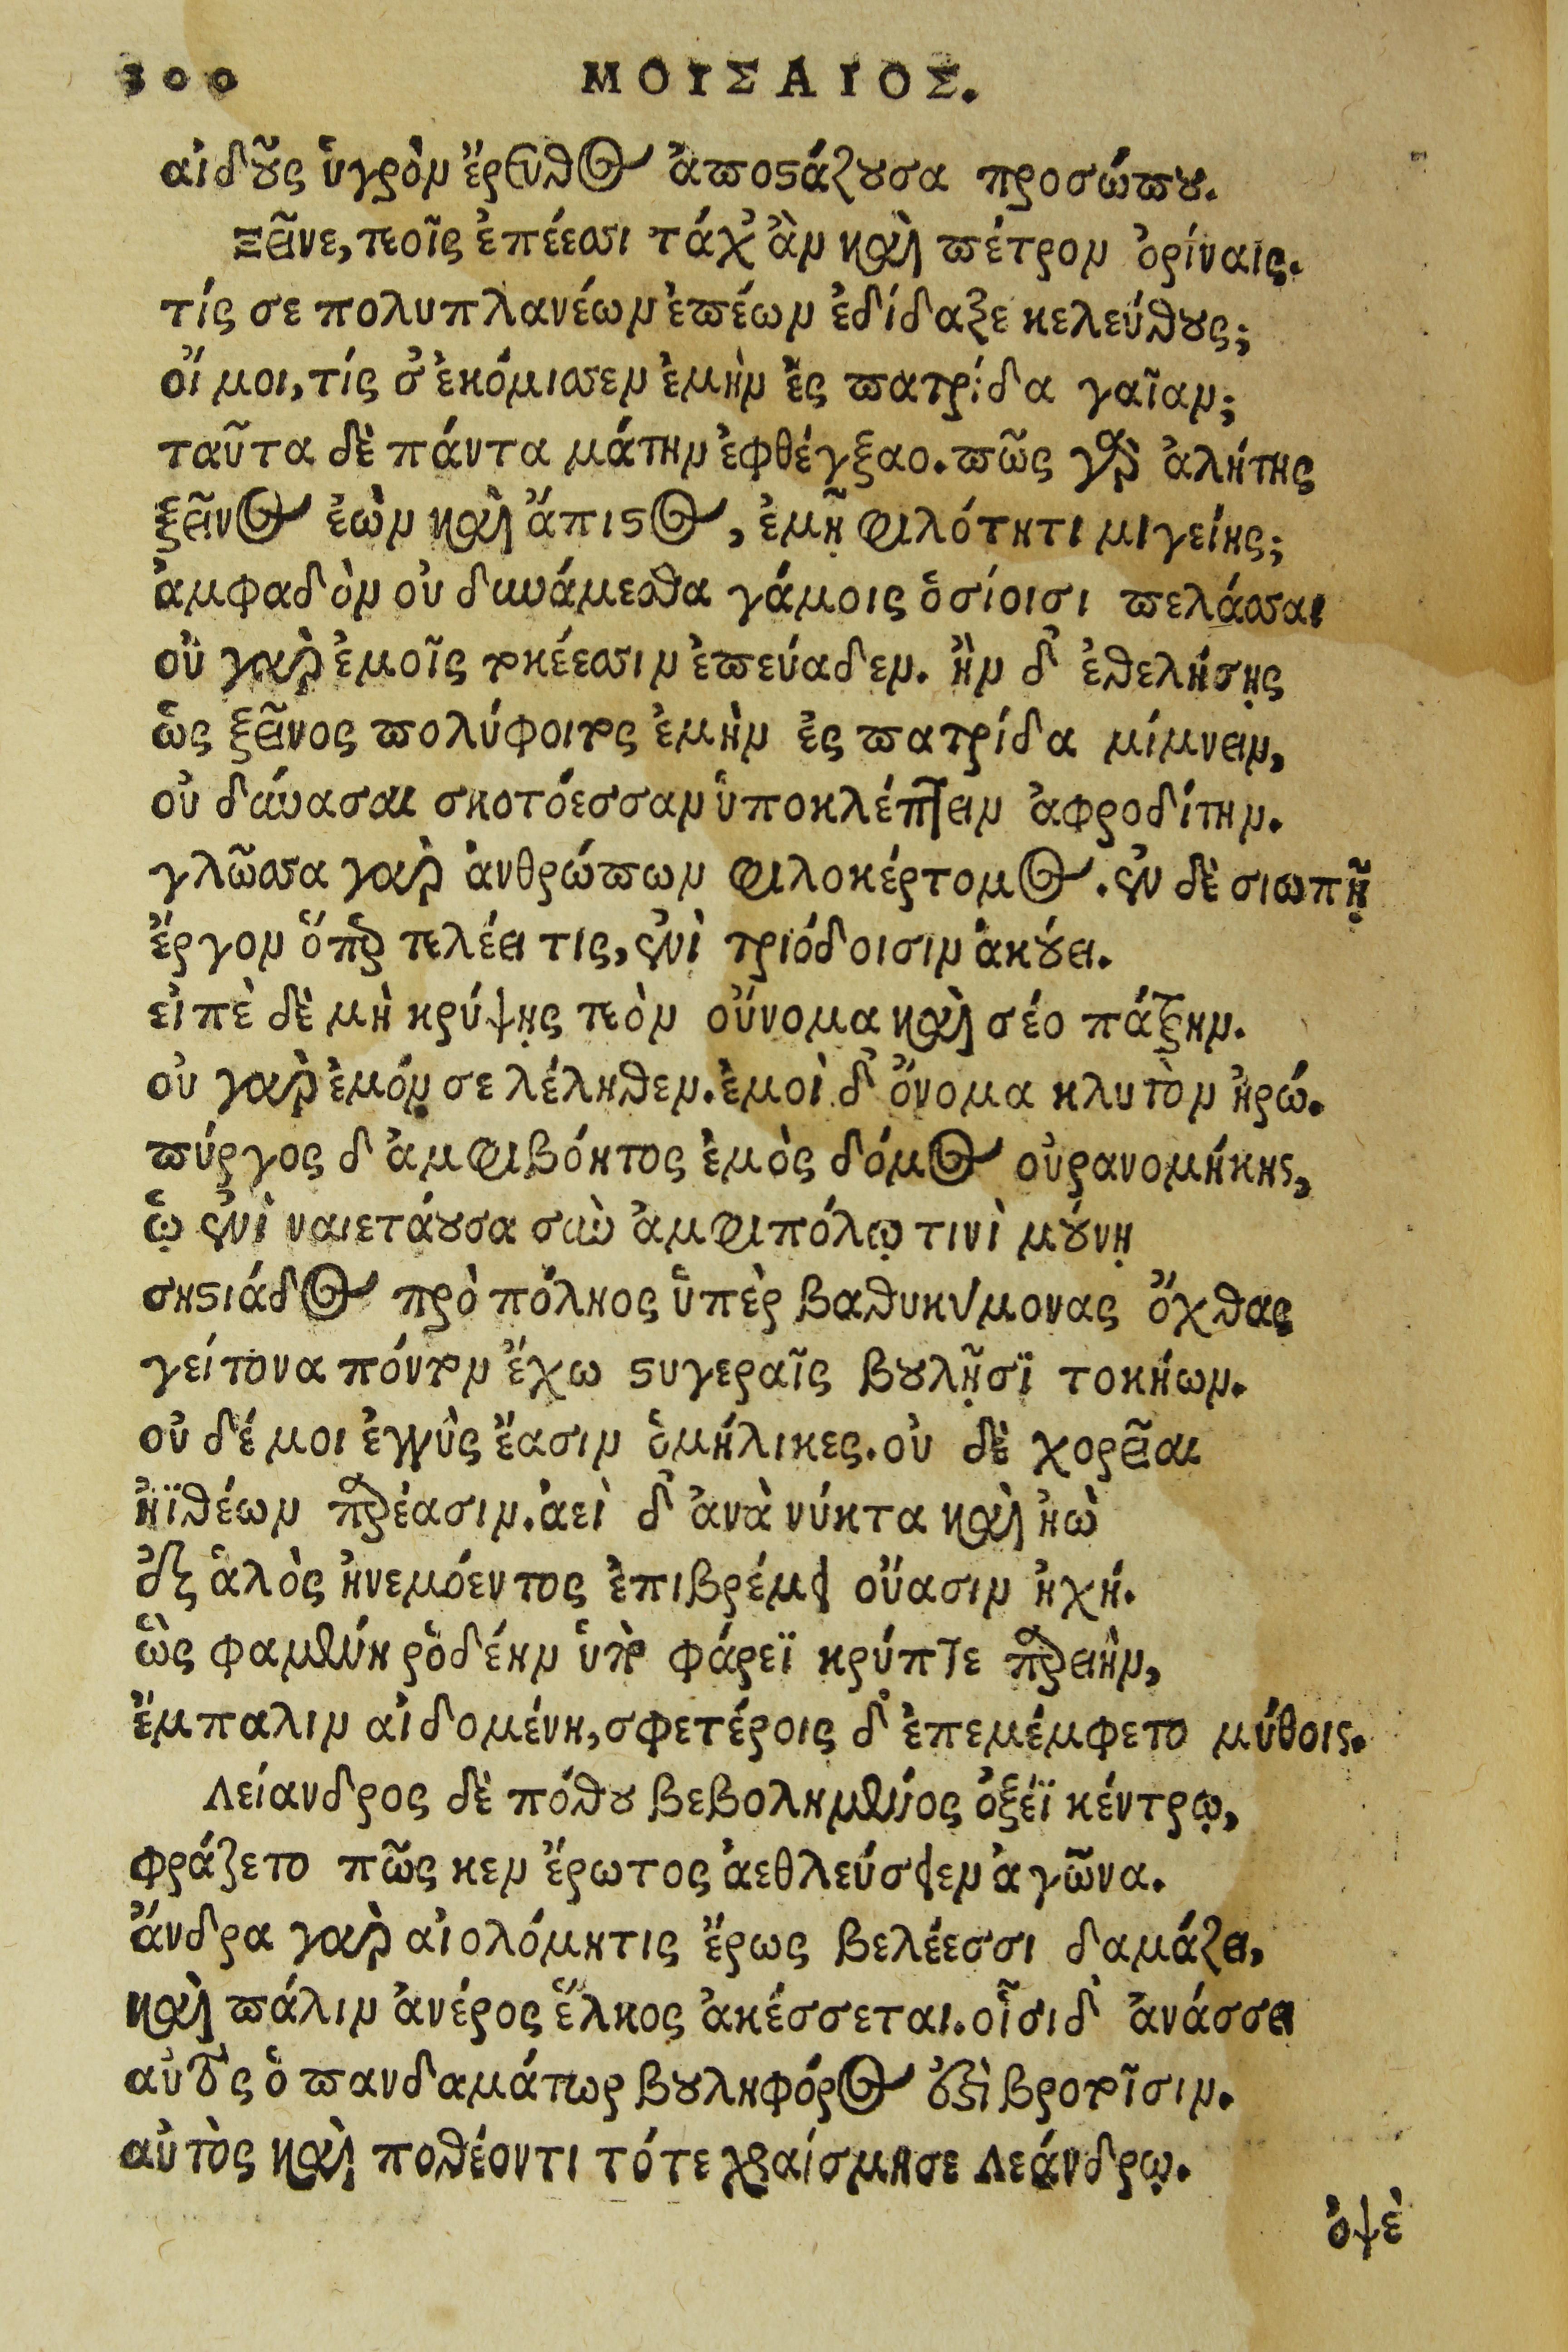 300 ΜΟΥΣΑΙΟΣ.
αἰδοῦς ὑγρὸν ἔρευθος ἀποστάζουσα προσώπου.
Ξεῖνε, τεοῖς ἐπέεσσι τάχ' ἂν καὶ πέτρον ὀρίναις.
τίς σε πολυπλανέων ἐπέων ἐδίδαξε κελεύθους;
οἴ μοι, τίς σ' ἐκόμισσεν ἐμὴν ἐς πατρίδα γαῖαν;
ταῦτα δὲ πάντα μάτην ἐφθέγξαο. πῶς γὰρ ἀλήτης
ξεῖνος ἐὼν καὶ ἄπιστος, ἐμῇ φιλότητι μιγείης;
ἀμφαδὸν οὐ δυνάμεσθα γάμοις ὁσίοισι πελάσσαι
οὐ γαρ ἐμοῖς τοκέεσσιν ἐπεύαδεν. ἢν δ' ἐθελήσῃς
ὡς ξεῖνος πολύφοιτος ἐμὴν ἐς πατρίδα μίμνειν,
οὐ δύνασαι σκοτόεσσαν ὑποκλέπτειν ἀφροδίτην.
γλῶσσα γαρ ἀνθρώπων φιλοκέρτομος. ἐν δὲ σιωπῇ
ἔργον ὅπερ τελέει τις, ἐνὶ τριόδοισιν ἀκούει.
εἰπὲ δὲ μὴ κρύψῃς τεὸν οὔνομα καὶ σέο πάτρην.
οὐ γαρ ἐμόν σε λέληθεν. ἐμοὶ δ' ὄνομα κλυτὸν ἡρώ.
πύργος δ' ἀμφιβόητος ἐμὸς δόμος οὐρανομήκης,
ᾧ ἐνὶ ναιετάουσα σὺν ἀμφιπόλῳ τινὶ μούνῃ
σηστιάδος πρὸ πόληος ὑπὲρ βαθυκύμονας ὄχθας
γείτονα πόντον ἔχω στυγεραῖς βουλῇσϊ τοκήων.
οὐ δέ μοι ἐγγὺς ἔασιν ὁμήλικες. οὐ δὲ χορεῖαι
ἠϊθέων παρέασιν. ἀεὶ δ' ἀνὰ νύκτα καὶ ἠὼ
ἐξ ἁλὸς ἠνεμόεντος ἐπιβρέμει οὔασιν ἠχή.
ὣς φαμένη ῥοδέην ὑπὸ φάρεϊ κρύπτε παρειὴν,
ἔμπαλιν αἰδομένη, σφετέροις δ' ἐπεμέμφετο μύθοις.
Λείανδρος δὲ πόθου βεβολημένος ὀξέϊ κέντρῳ,
φράζετο πῶς κεν ἔρωτος ἀεθλεύσειεν ἀγῶνα.
ἄνδρα γαρ αἰολόμητις ἔρως βελέεσσι δαμάζει,
καὶ πάλιν ἀνέρος ἕλκος ἀκέσσεται. οἷσι δ' ἀνάσσει
αὐτὸς ὁ πανδαμάτωρ βουληφόρος ἐστὶ βροτοῖσιν.
αὐτὸς καὶ ποθέοντι τότε χραίσμησε Λεάνδρῳ.
ὀψὲ